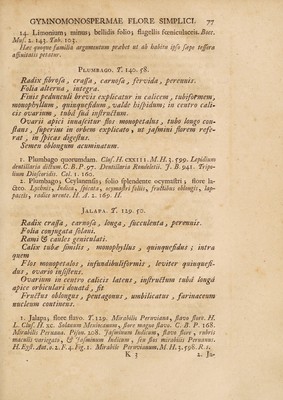 GYMNOMONOSPERMAE FLORE SIMPLICI. 77
14. Limonium; minus; bellidis folio; flagellis fœniculaceis. Bocc.
Mus. 2. 143. Tab. 103.
Hæc quoque familia argumentum præbet ut ab habitu ipso sæpe tessera
affinitatis petatur.
PLUMBAGO. T. 140. 58.
Radix fibrosa, crassa, carnosa, fervida, perennis.
Folia alterna, integra.
Finis pedunculi brevis explicatur in calicem, tubiformem,
monophyllum, quinquefidum, valde hispidum; in centro cali-
cis ovarium, tubâ suâ instructum.
Ovarii apici innascitur flos monopetalus, tubo longo con-
stans, superius in orbem explicato, ut jasmini florem refe-
rat, in spicas digestus.
Semen oblongum acuminatum.
1. Plumbago quorumdam. Clus. H. CXXIII. M. H. 3. 599. Lepidium
dentillaria dictum. C. B. P. 97. Dentillaria Rondeletii. J. B. 2. 941. Tripo-
lium Dioscoridis. Col. 1. 160.
2. Plumbago; Ceylanensis; folio splendente ocymastri; flore la-
cteo. Lychnis, Indica, spicata, ocymastri foliis, fructibus oblongis, lap-
paceis, radice urente. H. A. 2. 169. H.
JALAPA. T. 129. 50.
Radix crassa, carnosa, longa, succulenta, perennis.
Folia conjugata solani.
Rami & caules geniculati.
Calix tubæ similis, monophyllus, quinquefidus; intra
quem
Flos monopetalos, infundibuliformis, leviter quinquefi-
dus, ovario insistens.
Ovarium in centro calicis latens, instructum tubâ longâ
apice orbiculari donatâ, fit
Fructus oblongus, pentagonus, umbilicatus, farinaceum
nucleum continens.
1. Jalapa; flore flavo. T. 129. Mirabilis Peruviana, flavo flore. H.
L. Clus. H. XC. Solanum Mexiocanum, flore magno flavo. C. B. P. 168.
Mirabilis Peruviana. Dison. 208. Jasminum Indicum, flavo flore, rubris
maculis variegato, & Jasminum Indicum, seu flos mirabilis Peruvianus.
H. Eyst. Aut. o. 2. F. 4. Fig. 1. Mirabilis Peruvianum. M. H. 3. 598. R. s.
K 3 2. Ja-